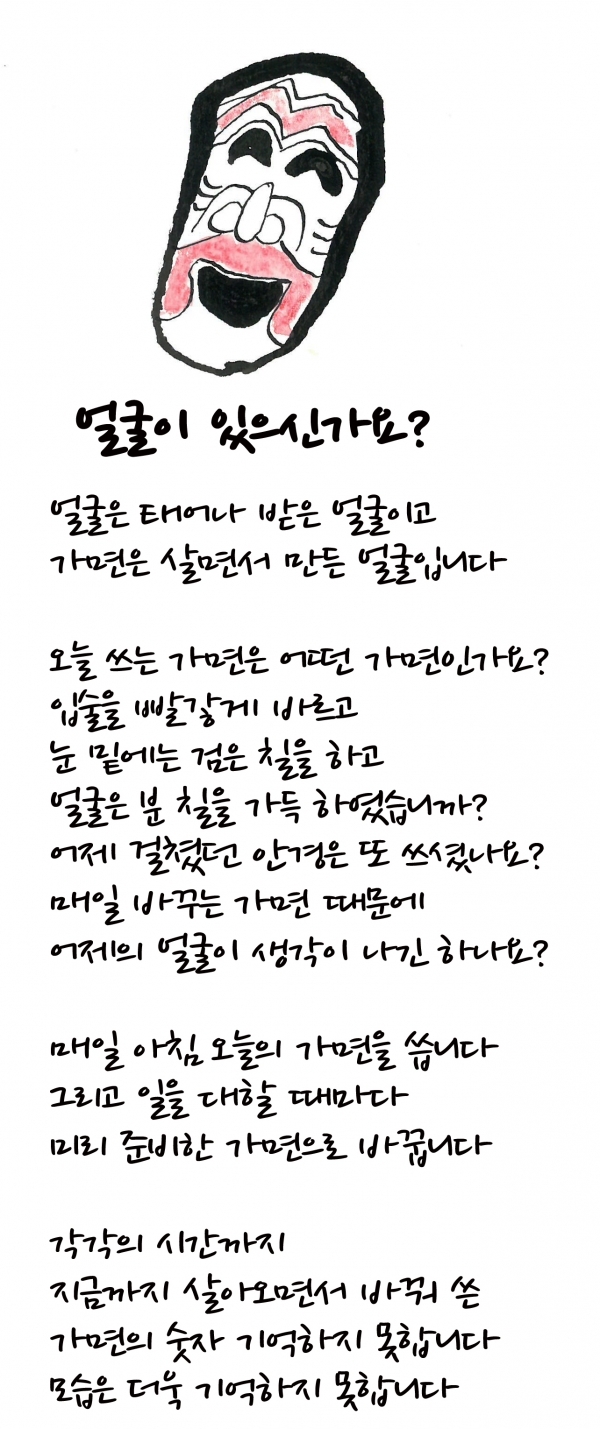 얼굴이 있으신가요?
얼굴은 태어나 받은 얼굴이고
가면은 살면서 만든 얼굴입니다
오늘 쓰는 가면은 어떤 가면인가요?
입술을 빨갛게 바르고
눈 밑에는 검은 칠을 하고
얼굴은 분 칠을 가득 하였습니까?
어제 걸쳤던 안경은 또 쓰셨나요?
매일 바꾸는 가면 때문에
어제의 얼굴이 생각이 나긴 하나요?
매일 아침 오늘의 가면을 씁니다
그리고 일을 대할 때마다
미리 준비한 가면으로 바꿉니다
각각의 시간까지
지금까지 살아오면서 바꿔 쓴
가면의 숫자 기억하지 못합니다
모습은 더욱 기억하지 못합니다